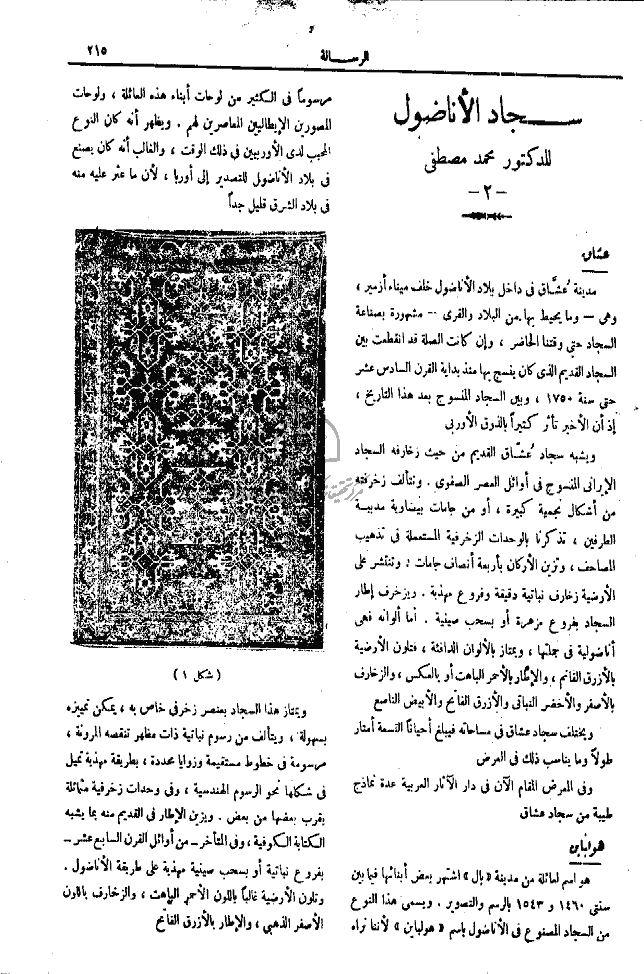 الرسالة
٢١٥
سجاد الأناضول
للدكتور محمد مصطفى
- ٢ -
عشاق
مدينة عُشَّاق فى داخل بلاد الأناضول خلف ميناء أزمير ،
وهى — وما يحيط بها من البلاد والقرى — مشهورة بصناعة
السجاد حتى وقتنا الحاضر ، وإن كانت الصلة قد انقطعت بين
السجاد القديم الذى كان ينسج بها منذ بداية القرن السادس عشر
حتى سنة ١٧٥٠ ، وبين السجاد المنسوج بعد هذا التاريخ ،
إذ أن الأخير تأثر كثيراً بالذوق الأوربى
ويشبه سجاد عُشّاق القديم من حيث زخارفه السجاد
الإيرانى المنسوج فى أوائل العصر الصفوى . وتتألف زخرفته
من أشكال نجمية كبيرة ، أو من جامات بيضاوية مدببة
الطرفين ، تذكرنا بالوحدات الزخرفية المستعملة فى تذهيب
المصاحف ، وتزين الأركان بأربعة أنصاف جامات ؛ وتنتشر على
الأرضية زخارف نباتية دقيقة وفروع مهذبة . ويزخرف إطار
السجاد بفروع مزهرة أو بسحب صينية . أما ألوانه فهى
أناضولية فى جملتها ، ويمتاز بالألوان الدافئة ، فتلون الأرضية
بالأزرق القاتم ، والإطار بالأحمر الباهت أو بالعكس ، والزخارف
بالأصفر والأخضر النباتى والأزرق الفاتح والأبيض الناصع
ويختلف سجاد عشاق فى مساحاته فيبلغ أحياناً التسعة أمتار
طولاً وما يناسب ذلك فى العرض
وفى المعرض المقام الآن فى دار الآثار العربية عدة نماذج
طيبة من سجاد عشاق
هولباين
هو اسم لعائلة من مدينة «بال» اشتهر بعض أبنائها فيما بين
سنتى ١٤٦٠ و ١٥٤٣ بالرسم والتصوير . ويسمى هذا النوع
من السجاد المصنوع فى الأناضول باسم «هولباين» لأننا نراه
مرسوماً فى الكثير من لوحات أبناء هذه العائلة ، ولوحات
المصورين الإيطاليين المعاصرين لهم . ويظهر أنه كان النوع
المحبب لدى الأوربيين فى ذلك الوقت ، والغالب أنه كان يصنع
فى بلاد الأناضول للتصدير إلى أوربا ، لأن ما عثر عليه منه
فى بلاد الشرق قليل جداً
( شكل ١ )
ويمتاز هذا السجاد بعنصر زخرفى خاص به ، يمكن تمييزه
بسهولة ، ويتألف من رسوم نباتية ذات مظهر تنقصه المرونة ،
مرسومة فى خطوط مستقيمة وزوايا محددة ، بطريقة مهذبة تميل
فى شكلها نحو الرسوم الهندسية ، وفى وحدات زخرفية متماثلة
يقرب بعضها من بعض . ويزين الإطار فى القديم منه بما يشبه
الكتابة الكوفية ، وفى المتأخر — من أوائل القرن السابع عشر —
بفروع نباتية أو بسحب صينية مهذبة على طريقة الأناضول .
وتلون الأرضية غالباً باللون الأحمر الباهت ، والزخارف باللون
الأصفر الذهبى ، والإطار بالأزرق الفاتح